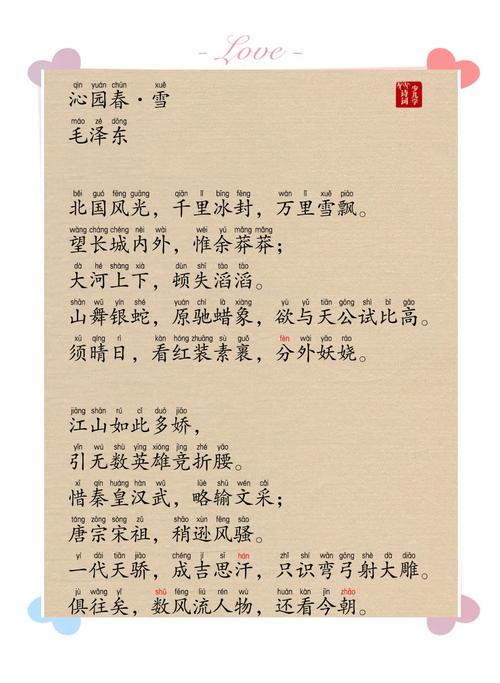 - Love -
qìn yuán chūn xuě
沁园春·雪
少儿学诗词
máo zé dōng
毛泽东
běi guó fēng guāng qiān lǐ bīng fēng wàn lǐ xuě piāo
北国风光，千里冰封，万里雪飘。
wàng cháng chéng nèi wài wéi yú mǎng mǎng
望长城内外，惟余莽莽；
dà hé shàng xià dùn shī tāo tāo
大河上下，顿失滔滔。
shān wǔ yín shé yuán chí là xiàng yù yǔ tiān gōng shì bǐ gāo
山舞银蛇，原驰蜡象，欲与天公试比高。
xū qíng rì kàn hóng zhuāng sù guǒ fèn wài yāo ráo
须晴日，看红装素裹，分外妖娆。
jiāng shān rú cǐ duō jiāo
江山如此多娇，
yǐn wú shù yīng xióng jìng zhé yāo
引无数英雄竞折腰。
xī qín huáng hàn wǔ lüè shū wén cǎi
惜秦皇汉武，略输文采；
táng zōng sòng zǔ shāo xùn fēng sāo
唐宗宋祖，稍逊风骚。
yí dài tiān jiāo chéng jí sī hán zhǐ shí wān gōng shè dà diāo
一代天骄，成吉思汗，只识弯弓射大雕。
jù wǎng yǐ shǔ fēng liú rén wù huán kàn jīn zhāo
俱往矣，数风流人物，还看今朝。